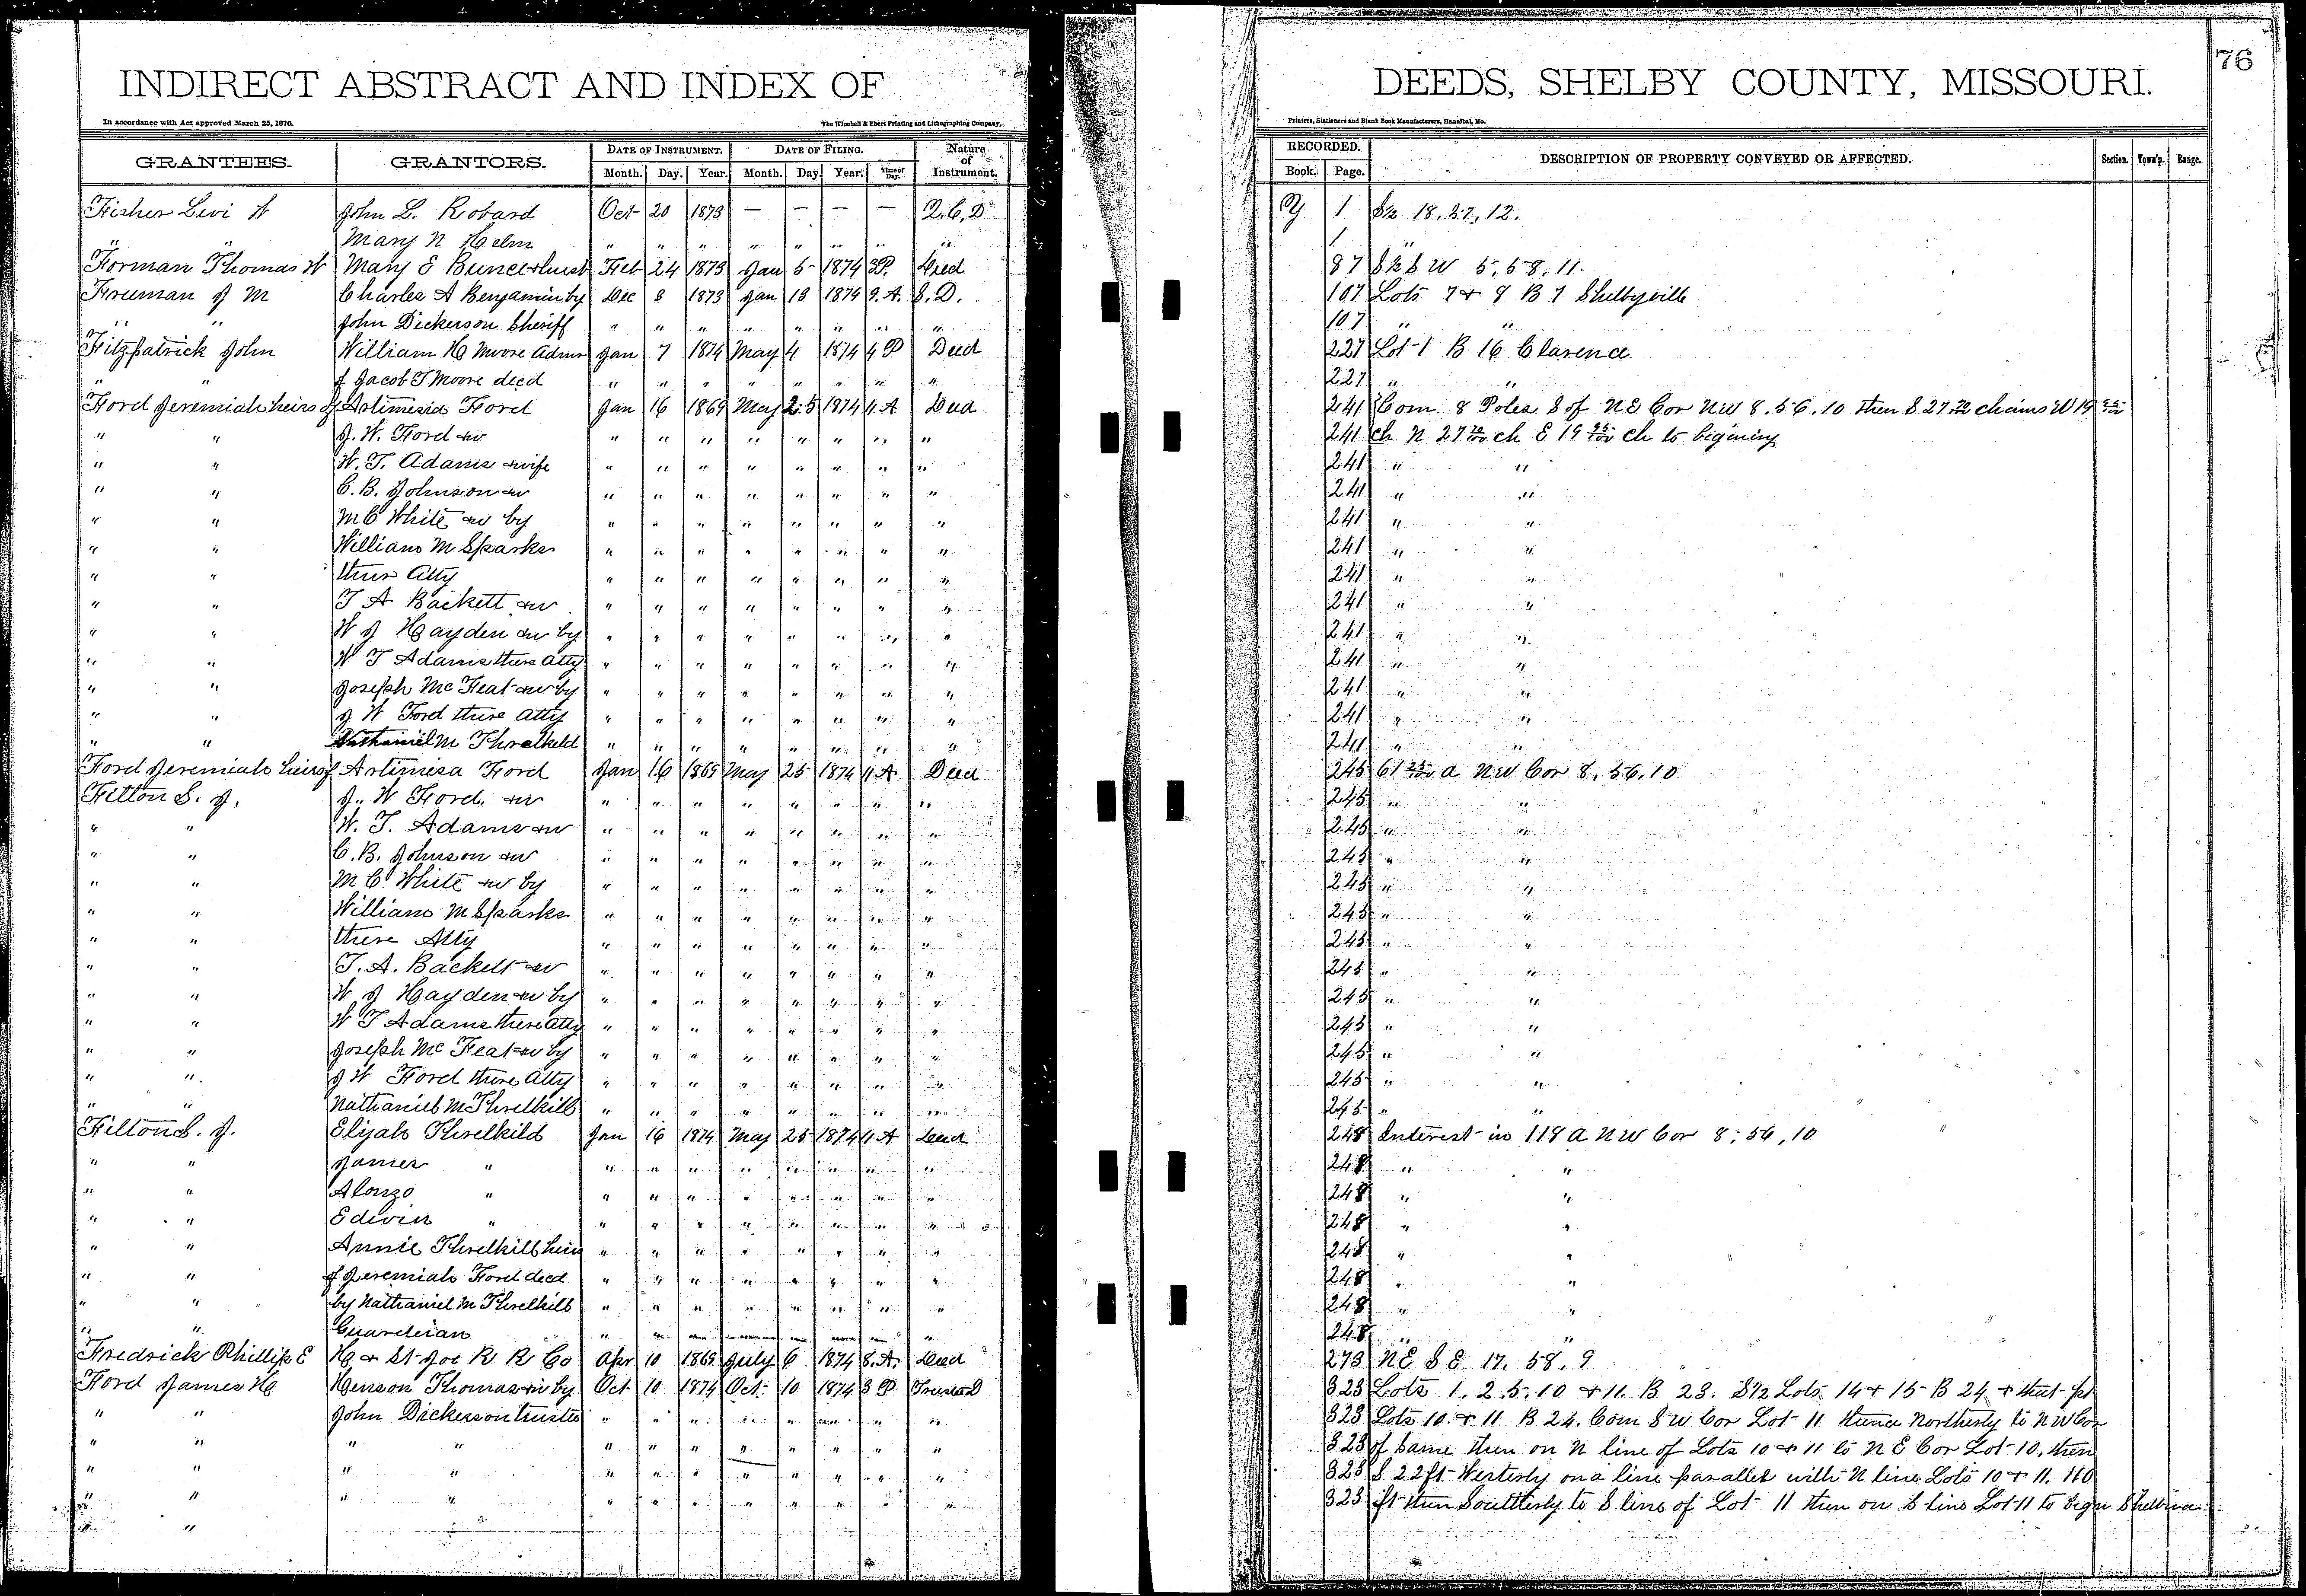 INDIRECT ABSTRACT AND INDEX OF DEEDS, SHELBY COUNTY, MISSOURI.
76
In accordance with Act approved March 25, 1870.
The Winchell & Ebert Printing and Lithographing Company,
Printers, Stationers and Blank Book Manufacturers, Hannibal, Mo.
GRANTEES. GRANTORS. DATE OF INSTRUMENT. DATE OF FILING. Nature of Instrument. RECORDED. DESCRIPTION OF PROPERTY CONVEYED OR AFFECTED. Section. Town'p. Range.
Month. Day. Year. Month. Day. Year. Time of Day. Book. Page.
Fisher Levi W John L. Robard Oct 20 1873 — — — — Q. C. D Y 1 S½ 18, 57, 12.
" " Mary N Helm " " " " " " " " 1 "
Forman Thomas W Mary E Feb 24 1873 Jan 5 1874 3P. Deed 87 S½ S W 5, 58, 11.
Freeman J M Charles A Benjamin by Dec 8 1873 Jan 13 1874 9. A. S. D. 107 Lots 7 & 8 B 7 Shelbyville
" " John Dickerson Sheriff " " " " " " " " 107 " "
Fitzpatrick John William H Moore Admr Jan 7 1874 May 4 1874 4 P Deed 227 Lot 1 B 16 Clarence
" " of Jacob T Moore decd " " " " " " " " 227 " "
Ford Jeremiah heirs of Artimesia Ford Jan 16 1869 May 25 1874 11 A Deed 241 Com 8 Poles S of N E Cor N W 8. 56. 10 then S 27 70/100 chains W 19 95/100
" " J. W. Ford & w " " " " " " " " 241 ch N 27 70/100 ch E 19 95/100 ch to bigining
" " W. T. Adams & wife " " " " " " " " 241 " "
" " C. B. Johnson & w " " " " " " " " 241 " "
" " M C White & w by " " " " " " " " 241 " "
" " William M Sparks " " " " " " " " 241 " "
" " there Atty " " " " " " " " 241 " "
" " T A Backett & w " " " " " " " " 241 " "
" " W J Hayden & w by " " " " " " " " 241 " "
" " W T Adams there Atty " " " " " " " " 241 " "
" " Joseph Mc Feat & w by " " " " " " " " 241 " "
" " J W Ford there Atty " " " " " " " " 241 " "
" " Nathaniel M Threlkeld " " " " " " " " 241 " "
Ford Jeremiah heirs of Artimesa Ford Jan 16 1869 May 25 1874 11 A Deed 245 61 25/100 a N W Cor 8, 56, 10
Filton S. J. J. W Ford & w " " " " " " " " 245 " "
" " W. T. Adams & w " " " " " " " " 245 " "
" " C. B. Johnson & w " " " " " " " " 245 " "
" " M C White & w by " " " " " " " " 245 " "
" " William M Sparks " " " " " " " " 245 " "
" " there Atty " " " " " " " " 245 " "
" " T. A. Backett & w " " " " " " " " 245 " "
" " W J Hayden & w by " " " " " " " " 245 " "
" " W T Adams there Atty " " " " " " " " 245 " "
" " Joseph Mc Feat & w by " " " " " " " " 245 " "
" " J W Ford there Atty " " " " " " " " 245 " "
" " Nathaniel M Threlkill " " " " " " " " 245 " "
Filton S. J. Elijah Threlkild Jan 16 1874 May 25 1874 11 A Deed 248 Interest in 118 a N W Cor 8, 56, 10
" " James " " " " " " " " " 248 " "
" " Alonzo " " " " " " " " " 248 " "
" " Edwin " " " " " " " " " 248 " "
" " Annie Threlkill heirs " " " " " " " " 248 " "
" " of Jeremiah Ford decd " " " " " " " " 248 " "
" " by Nathaniel M Threlkill " " " " " " " " 248 " "
" " Guardian " " " " " " " " 248 " "
Fredrick Phillip E H & St Joe R R Co Apr 10 1869 July 6 1874 8. A. Deed 273 N E S E 17. 58. 9
Ford James H Henson Thomas & w by Oct 10 1874 Oct 10 1874 3 P. Trustee D 323 Lots 1. 2. 5. 10 & 11. B 23. S½ Lots 14 & 15 B 24 & that pt
" " John Dickerson trustee " " " " " " " " 323 Lots 10. & 11 B 24. Com S W Cor Lot 11 thence Northerly to N W Cor
" " " " " " " " " " " " 323 of same then on N line of Lots 10 & 11 to N E Cor Lot 10, then
" " " " " " " " " " " " 323 S 22 ft Westerly on a line parallel with N line Lots 10 & 11. 110
" " " " " " " " " " " " 323 ft then Southerly to S line of Lot 11 then on S line Lot 11 to begn Shelbina
" "